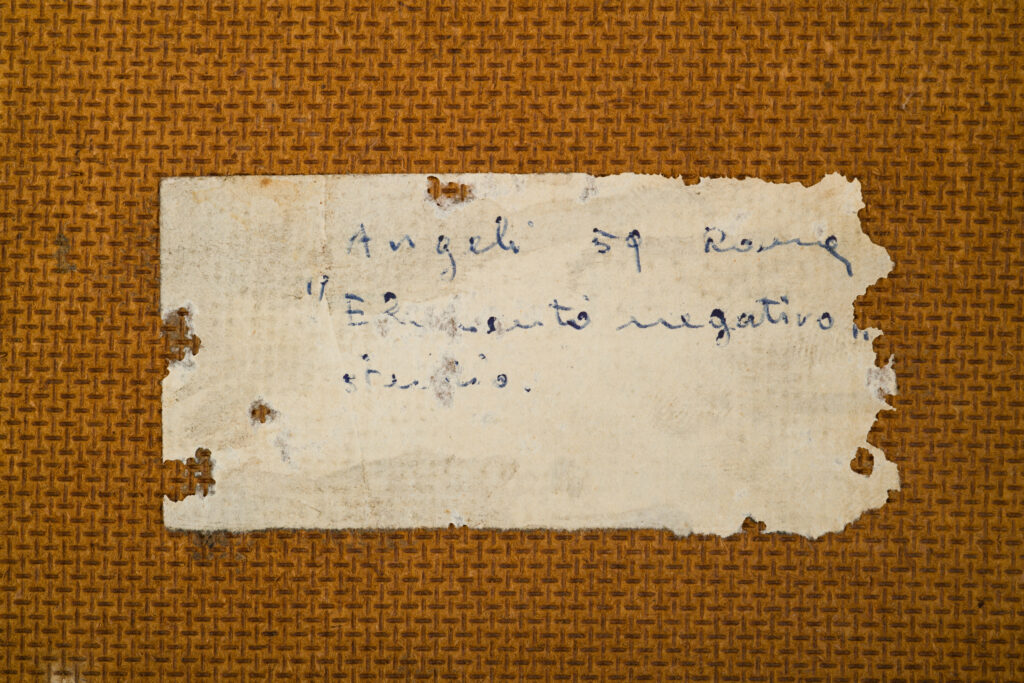 Angeli 59 Roma
" Elemento negativo "